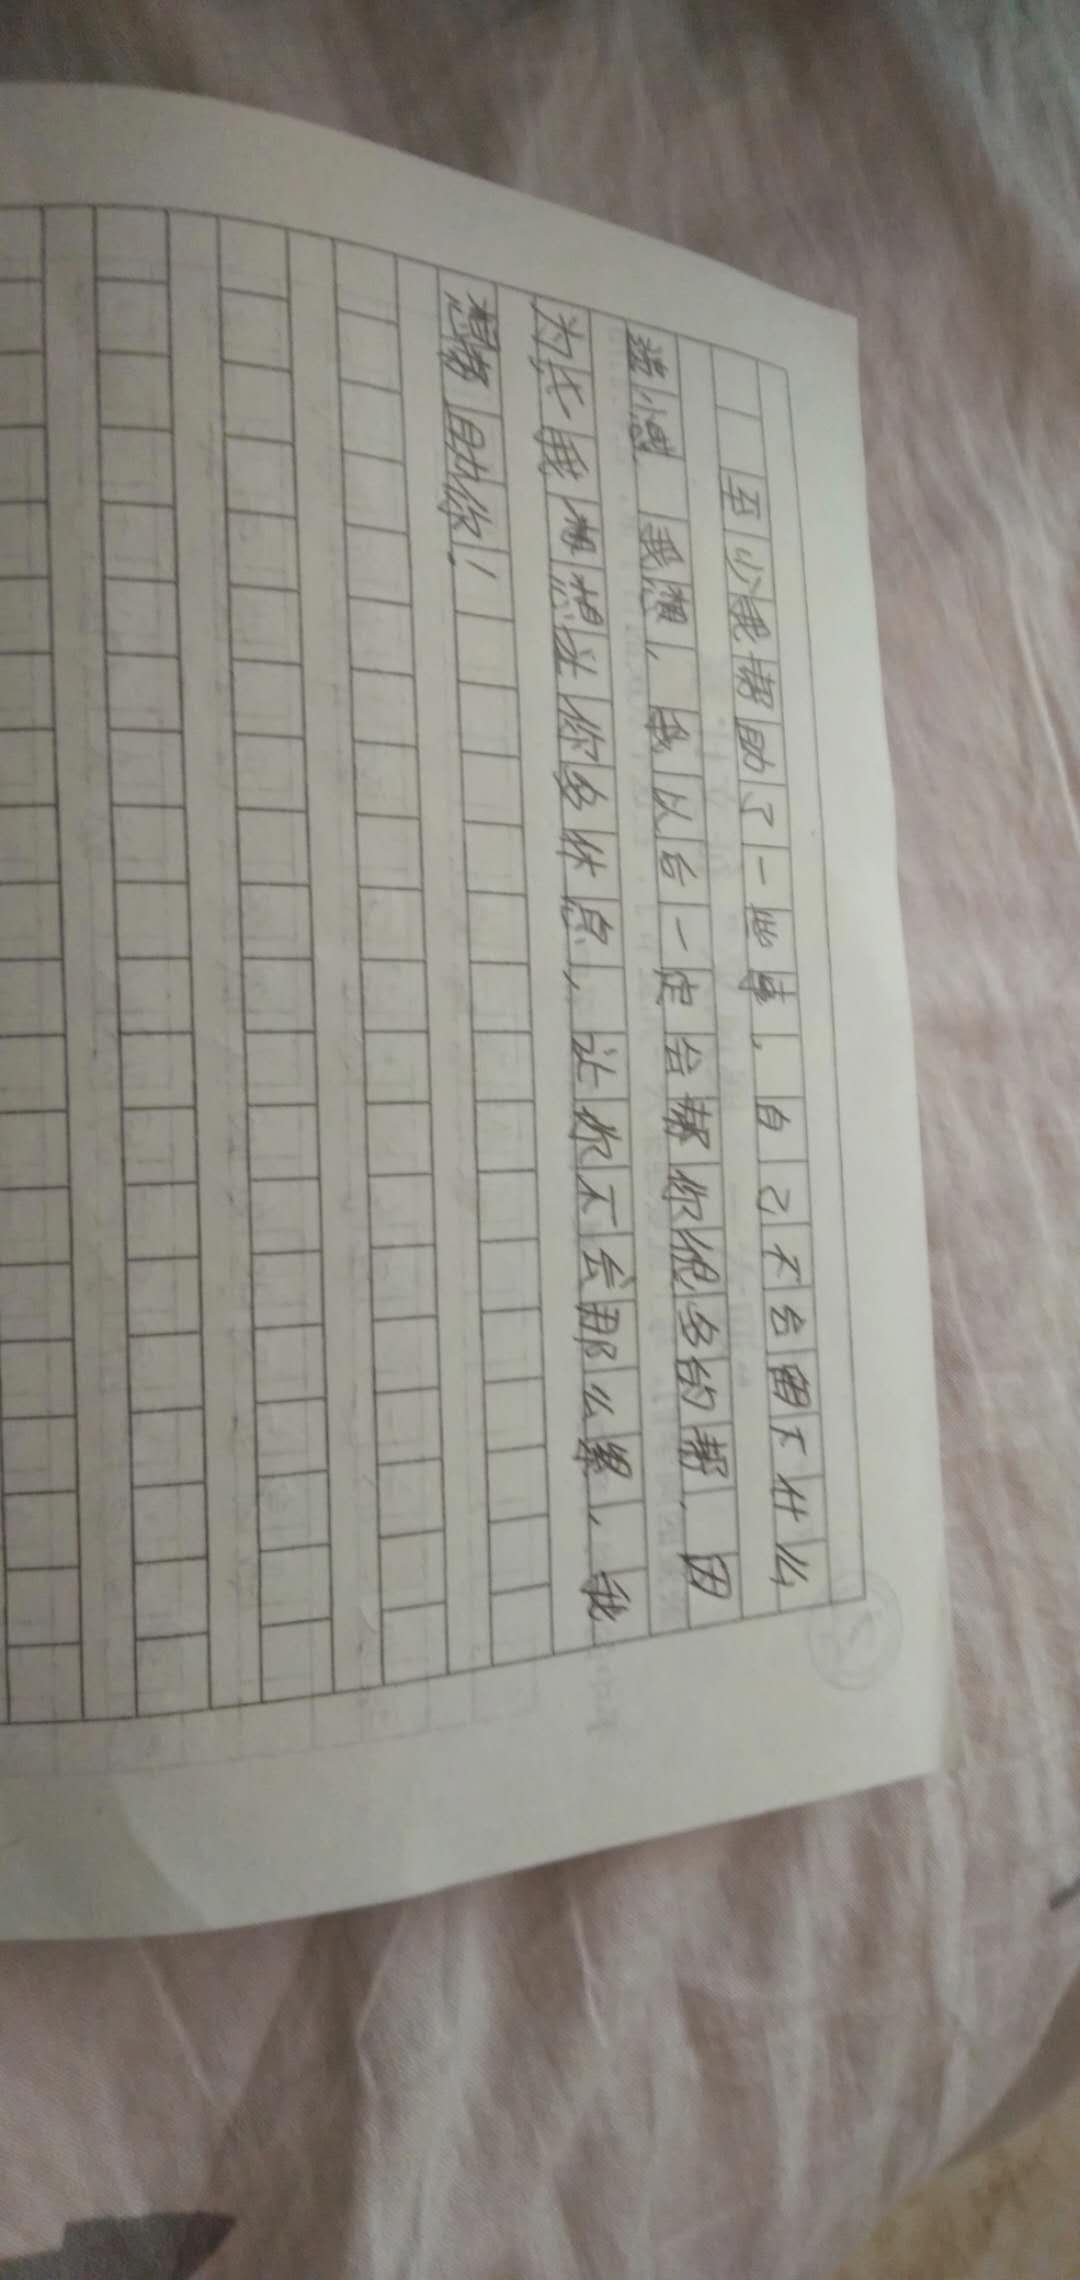 至少我帮助了一些事，自己不会留下什么
遗憾 我想，我以后一定会帮你很多的帮，因
为我想让你多休点，让你不会那么累，我
想帮助你！